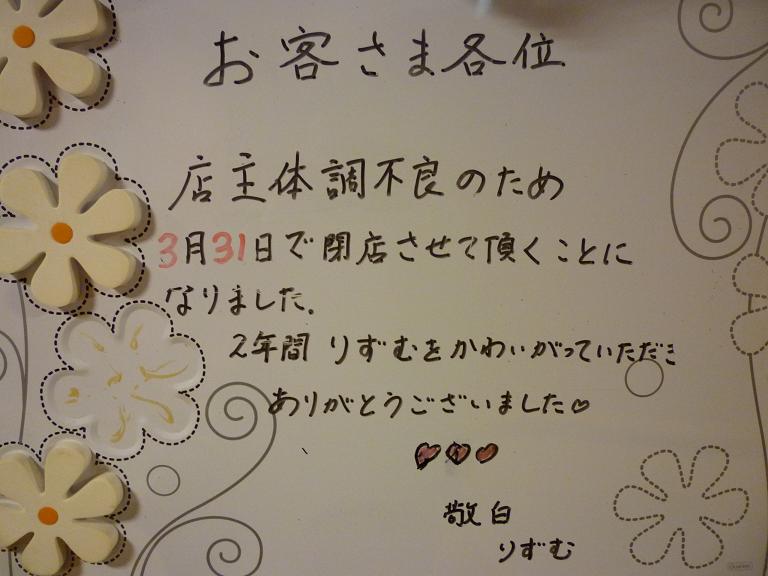 お客さま各位
店主体調不良のため
3月31日で閉店させて頂くことに
なりました.
2年間 りずむをかわいがっていただき
ありがとうございました♡
♡♡♡
敬白
りずむ